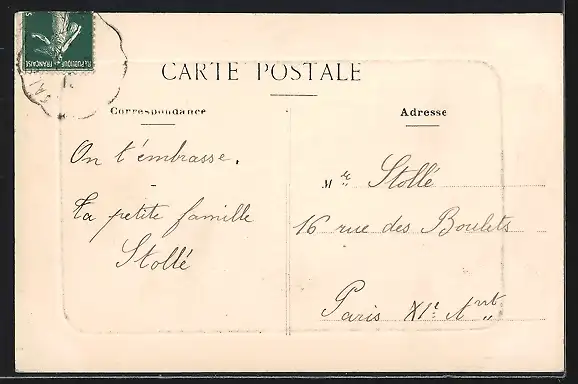 RÉPUBLIQUE FRANÇAISE
CARTE POSTALE
Correspondance
On t'embrasse.
Ta petite famille
Stollé
Adresse
Mr Stollé
16 rue des Boulets
Paris XIe Arrt